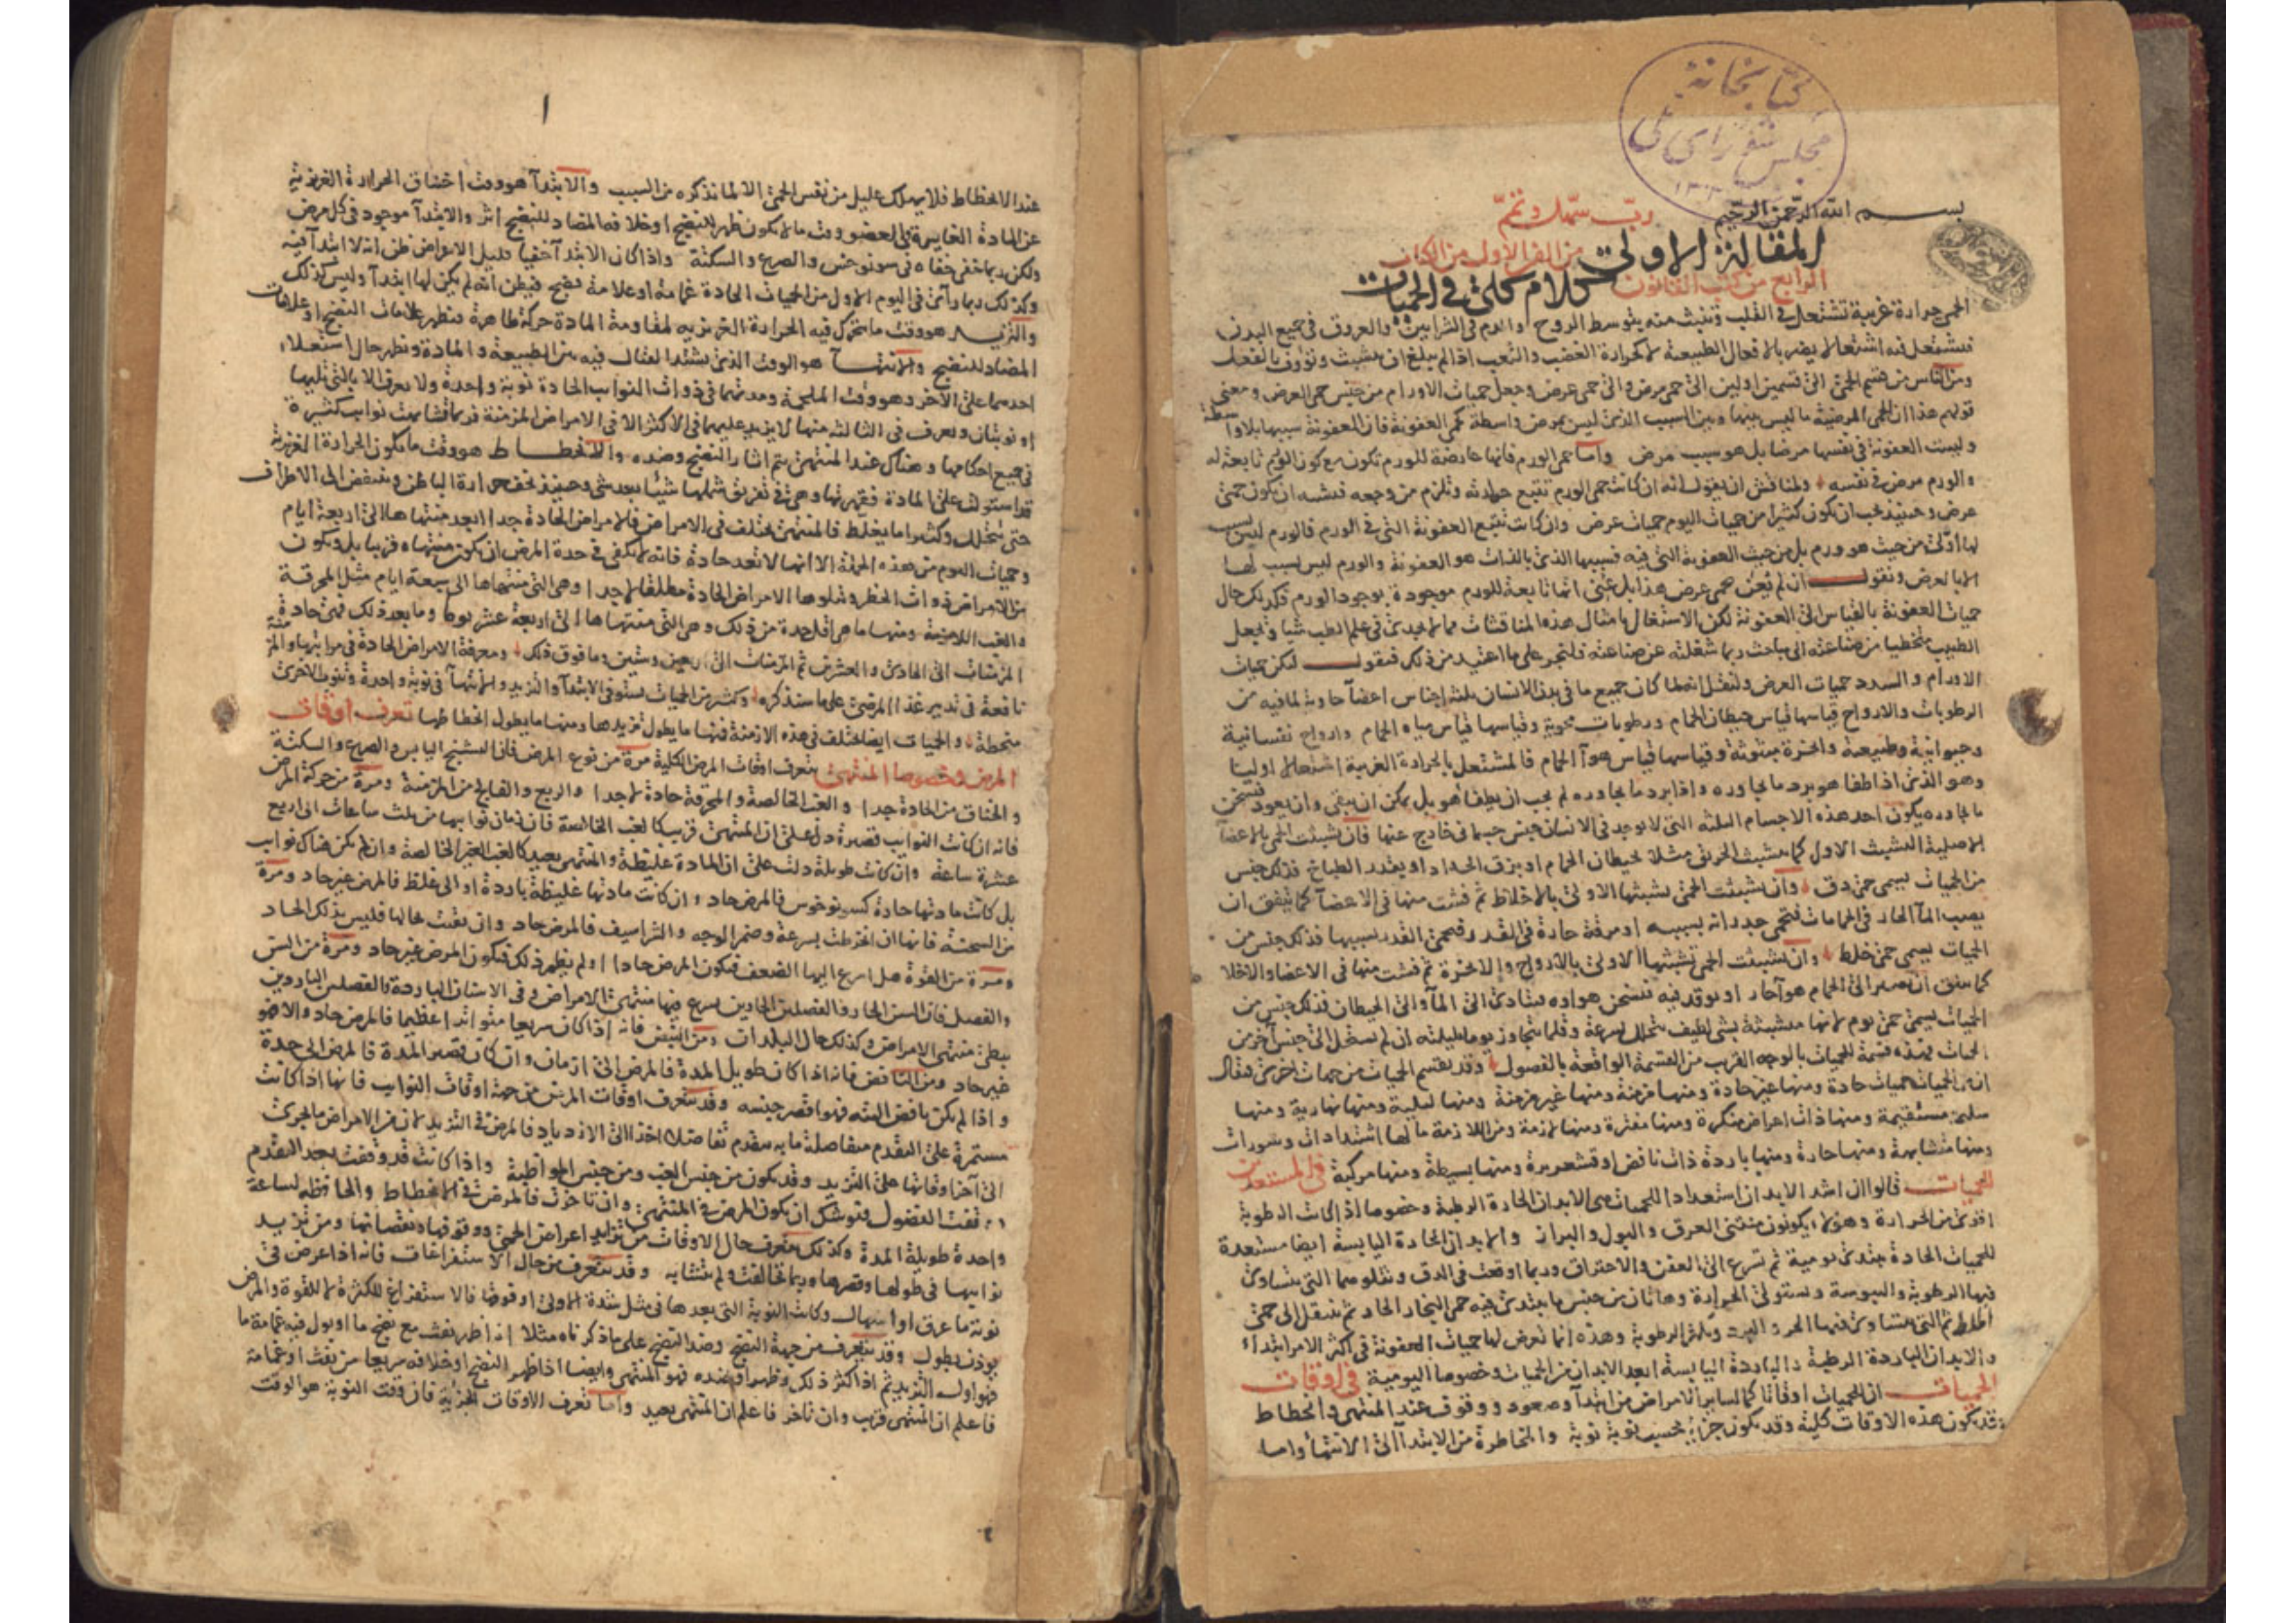 كتابخانة
مجلس شورای ملی
بسم الله الرحمن الرحيم رب سهل وتمم
المقالة الاولى من الفن الاول من الكتاب
الرابع من كتب القانون كلام كلى في الحميات
الحمى حرارة غريبة تشتعل في القلب وتنبث منه بتوسط الروح والدم في الشرايين والعروق في جميع البدن
فتشتعل فيه اشتعالا يضر بالافعال الطبيعية لا كحرارة الغضب والتعب اذا لم يبلغ ان تتشبث وتؤوف بالفعل
ومن الناس من قسم الحمى الى قسمين اولين الى حمى مرض والى حمى عرض وجعل حميات الاورام من جنس حمى العرض ومعنى
قولهم هذا ان الحمى المرضية ما ليس بينها وبين السبب الذى ليس بمرض واسطة كحمى العفونة فان العفونة سببها بلا واسطة
وليست العفونة في نفسها مرضا بل هو سبب مرض واما حمى الورم فانها عارضة للورم تكون مع كون الورم تابعة له
والورم مرض في نفسه ولمناقش ان يقول انه ان كانت حمى الورم تتبع حرارته وتلزم من وجعه فيشبه ان يكون حمى
عرض وحينئذ يجب ان يكون كثيرا من حميات اليوم حميات عرض وان كانت تتبع العفونة التى في الورم فالورم ليس بسبب
لها اولى من حيث هو ورم بل من حيث العفونة التى فيه فسببها الذى بالذات هو العفونة والورم ليس بسبب لها
الا بالعرض ونقول ان لم يعن حمى عرض هذا بل عنى انها تابعة للورم موجودة بوجود الورم فكذلك حال
حميات العفونة بالقياس الى العفونة لكن الاشتغال بامثال هذه المناقشات مما لا يجدى في علم الطب شيا ويجعل
الطبيب متخطيا من صناعته الى مباحث ربما شغلته عن صناعته فلنجر على ما اعتيد من ذلك فنقول لتكن حميات
الاورام والسدد حميات العرض ولنقل انه لما كان جميع ما في بدن الانسان ثلثة اجناس اعضآ حاوية لما فيه من
الرطوبات والارواح قياسها قياس حيطان الحمام ورطوبات محوية وقياسها قياس مياه الحمام وارواح نفسانية
وحيوانية وطبيعية وابخرة مبثوثة وقياسها قياس هوآ الحمام فالمشتعل بالحرارة الغريبة اشتعالا اوليا
وهو الذى اذا طفا هو برد ما يجاوره واذا برد ما يجاوره لم يجب ان يطفا هو بل يمكن ان يبقى وان يعود فيسخن
ما يجاوره يكون احد هذه الاجسام الثلثة التى لا يوجد في الانسان جنس جسمانى خارج عنها فان تشبثت الحمى بالاعضآ
الاصلية التشبث الاول كما تتشبث الحرق مثلا بحيطان الحمام او بزق الحداد او بقدر الطباخ فذلك جنس
من الحميات يسمى حمى دق وان تشبثت الحمى تشبثها الاولى بالاخلاط ثم فشت منها في الاعضآ كما يتفق ان
يصب المآ الحار في الحمامات فتحمى جدرانه بسببه او مرقة حارة في القدر فتحمى القدر بسببها فذلك جنس من
الحميات يسمى حمى خلط وان تشبثت الحمى تشبثها الاولى بالارواح والابخرة ثم فشت منها في الاعضا والاخلا
كما يتفق ان يصير الى الحمام هوآ حار او يوقد فيه فيسخن هواءه فيتادى الى المآ والى الحيطان فذلك جنس من
الحميات يسمى حمى يوم لانها متشبثة بشى لطيف يتحلل بسرعة وقلما يتجاوز يوما بليلته ان لم تستحل الى جنس اخر من
الحميات فهذه قسمة للحميات بالوجه القريب من القسمة الواقعة بالفصول وقد تقسم الحميات من جهات اخرى فيقال
ان من الحميات حميات حادة ومنها غير حادة ومنها مزمنة ومنها غير مزمنة ومنها ليلية ومنها نهارية ومنها
سليمة مستقيمة ومنها ذات اعراض منكرة ومنها مفترة ومنها لازمة ومن اللازمة ما لها اشتدادات وسورات
ومنها متشابهة ومنها حارة ومنها باردة ذات نافض او قشعريرة ومنها بسيطة ومنها مركبة في المستعدين
للحميات قالوا ان اشد الابدان استعدادا للحميات هى الابدان الحارة الرطبة وخصوصا اذا كانت الرطوبة
اقوى من الحرارة وهؤلاء يكونون منتنى العرق والبول والبراز والابدان الحارة اليابسة ايضا مستعدة
للحميات الحادة تبتدى يومية ثم تسرع الى العفن والاحتراق وربما اوقعت في الدق ويتلوهما التى يتساوى
فيها الرطوبة واليبوسة وتستولى الحرارة وهاتان من جنس ما يبتدى فيه حمى البخار الحار ثم تنتقل الى حمى
اخلاط ثم التى يتساوى فيها الحر و البرد ويكثر الرطوبة وهذه انما تعرض لها حميات العفونة في اكثر الامر ابتداء
والابدان الباردة الرطبة والباردة اليابسة ابعد الابدان من الحميات وخصوصا اليومية في اوقات
الحميات ان للحميات اوقاتا كما لساير الامراض من ابتدآ وصعود ووقوف عند المنتهى وانحطاط
وقد يكون هذه الاوقات كلية وقد يكون جزئية بحسب نوبة نوبة والمخاطرة من الابتدآ الى الانتهآ واما
عند الانحطاط فلا يهلك عليل من نفس الحمى الا لما نذكره من السبب والابتدآ هو وقت اختناق الحرارة الغريزية
عن المادة الغامرة في العضو ووقت ما لا يكون ظهر للنضج او خلافه المضاد للنضج اثر والابتدآ موجود في كل مرض
ولكن ربما خفى خفاه في سونوخس والصرع والسكتة واذا كان الابتدآ خفيا قليل الاعراض ظن انه لا ابتدآ فيه
وكذلك ربما رأى في اليوم الاول من الحميات الحادة غمامة او علامة نضج فيظن انه لم يكن لها ابتدآ وليس كذلك
والتزيد هو وقت ما تتحرك فيه الحرارة الغريزيه لمقاومة المادة حركة ظاهرة فيظهر علامات النضج او علامات
المضاد للنضج والانتهآ هو الوقت الذى يشتد القتال فيه بين الطبيعة والمادة ويظهر حال استعلاء
احدهما على الاخر وهو وقت الملحمة ومدتهما في ذوات النوايب الحادة نوبة واحدة ولا يعرف الا بالتى تليها
او نوبتان ويعرف في الثالثة منها لا يزيد عليهما في الاكثر الا في الامراض المزمنة فربما تشابهت نوايب كثيرة
في جميع احكامها وهناك عند المنتهى يتم اثار النضج وضده والانحطاط هو وقت ما يكون الحرارة الغريزية
قد استولت على المادة فقهرتها وهى في تفريق شملها شيئا بعد شى وحينئذ يخف حرارة الباطن وينتفض الى الاطراف
حتى يتحلل وكثيرا ما يغلط فالمنتهى يختلف في الامراض فالامراض الحادة جدا ابعد منتهاها الى اربعة ايام
وحميات اليوم من هذه الجملة الا انها لا تعد حادة فانه لا يكفى في حدة المرض ان يكون منتهاه قريبا بل ويكون
من الامراض ذوات الخطر ويتلوها الامراض الحادة مطلقا لا جدا وهى التى منتهاها الى سبعة ايام مثل المحرقة
والغب اللازمة ومنها ما هى اقل حدة من ذلك وهى التى منتهاها الى اربعة عشر يوما وما بعد ذلك فهى حادة
المزمنات الى الحادى والعشرين ثم المزمنات الى اربعين وستين وما فوق ذلك ومعرفة الامراض الحادة في مراتبها والمزمنة
نافعة في تدبير غذا المرضى على ما سنذكره وكثير من الحميات يستوفى الابتدآ والتزيد والانتهآ في نوبة واحدة وتنوب الاخرى
منحطة والحميات ايضا تختلف في هذه الازمنة فمنها ما يطول تزيدها ومنها ما يطول انحطاطها تعرف اوقات
المرض وخصوصا المنتهى يتعرف اوقات المرض الكلية مرة من نوع المرض فان التشنج اليابس والصرع والسكتة
والخناق من الحادة جدا والغب الخالصة والمحرقة حادة لا جدا والربع والفالج من المزمنة ومرة من حركة المرض
فانه ان كانت النوايب قصيرة دل على ان المنتهى قريب كالغب الخالصة فان زمان نوايبها من ثلث ساعات الى اربع
عشرة ساعة وان كانت طويلة دلت على ان المادة غليظة والمنتهى بعيد كالغب الغير الخالصة وان لم يكن هناك نوايب
بل كانت مادتها حادة كسونوخوس فالمرض حاد وان كانت مادتها غليظة باردة او الى غلظ فالمرض غير حاد ومرة
من السحنة فانها ان انخرطت بسرعة وضمر الوجه والشراسيف فالمرض حاد وان بقيت بحالها فليس بذلك الحاد
ومرة من القوة هل اسرع اليها الضعف فيكون المرض حادا او لم يظهر ذلك فيكون المرض غير حاد ومرة من السن
والفصل فان السن الحار والفصلين الحارين يسرع فيها منتهى الامراض وفى الاسنان الباردة والفصلين الباردين
يبطئ منتهى الامراض وكذلك حال البلدان ومن النبض فانه اذا كان سريعا متواترا عظيما فالمرض حاد والا فهو
غير حاد ومن النافض فانه اذا كان طويل المدة فالمرض الى ازمان وان كان قصير المدة فالمرض الى حدة
واذا لم يكن نافض البتة فهو اقصر جنسه وقد يتعرف اوقات المرض من جهة اوقات النوايب فانها اذا كانت
مستمرة على التقدم متفاضلة ما به يتقدم تفاضلا اخذا الى الازدياد فالمرض في التزيد لان من الامراض ما يجرى
الى اخر اوقاتها على التزيد وقد يكون من جنس الغب ومن جنس المواظبة واذا كانت قد وقفت بعد التقدم
وقفت الفضول فيوشك ان يكون المرض في المنتهى وان تاخرت فالمرض في الانحطاط والحافظة لساعة
واحدة طويلة المدة وكذلك يتعرف حال الاوقات من تزايد اعراض الحمى ووقوفها ونقصانها ومن تزيد
نوايبها في طولها وقصرها وربما تخالفت ولم تتشابه وقد يتعرف من حال الاستفراغات فانه اذا عرض في
نوبة ما عرق او اسهال وكانت النوبة التى بعدها في مثل شدة الاولى او فوقها فالاستفراغ للكثرة لا للقوة والمرض
يوذن بطول وقد يتعرف من جهة النضج وضد النضج على ما ذكرناه مثلا اذا ظهر نفث مع نضج ما او بول فيه غمامة ما
فهو اول التزيد ثم اذا كثر ذلك وظهر او ضده فهو المنتهى وايضا اذا ظهر النضج او خلافه سريعا من نفث او غمامة
فاعلم ان المنتهى قريب وان تاخر فاعلم ان المنتهى بعيد واما تعرف الاوقات الجزئية فان وقت النوبة هو الوقت